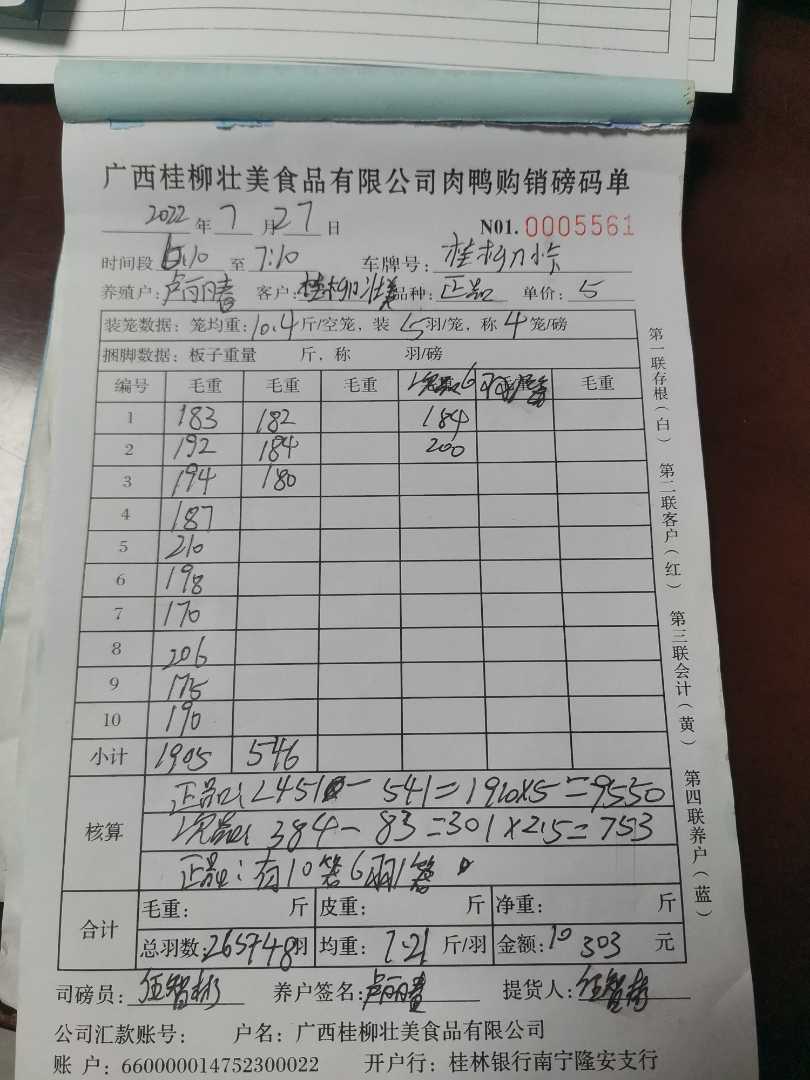 广西桂柳壮美食品有限公司肉鸭购销磅码单
2022年7月27日 N01.0005561
时间段6:10至7:10 车牌号:桂柳力恒
养殖户:卢丽春 客户:桂柳壮美 品种:正品 单价:5
装笼数据:笼均重:10.4斤/空笼,装5羽/笼,称4笼/磅
捆脚数据:板子重量 斤,称 羽/磅
编号 毛重 毛重 毛重 次品 6 毛重
1 183 182 184
2 192 184 200
3 194 180
4 187
5 210
6 198
7 170
8 206
9 175
10 190
小计 1905 546
核算
正品:2451-541=1910×5=9550
次品:384-83=301×2.5=753
正品:有10笼6羽/笼
合计 毛重: 斤 皮重: 斤 净重: 斤
总羽数:265+48羽 均重:7.21斤/羽 金额:10303元
司磅员:伍智彬 养户签名:卢丽春 提货人:伍智彬
公司汇款账号: 户名:广西桂柳壮美食品有限公司
账 户:660000014752300022 开户行:桂林银行南宁隆安支行
第一联存根(白) 第二联客户(红) 第三联会计(黄) 第四联养户(蓝)